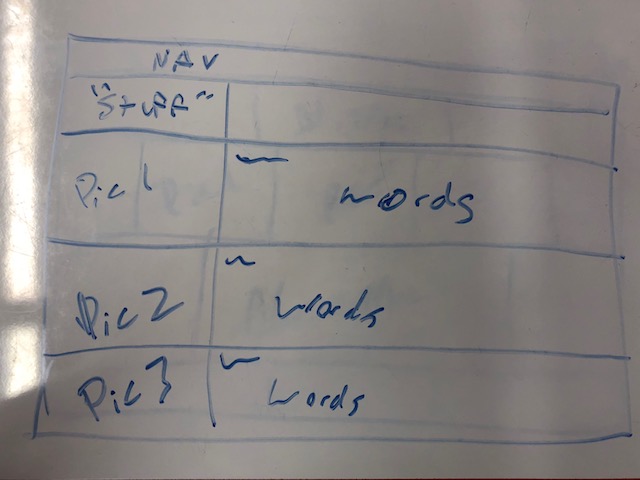 NAV
"Stuff"
Pic 1
words
Pic 2
words
Pic 3
words